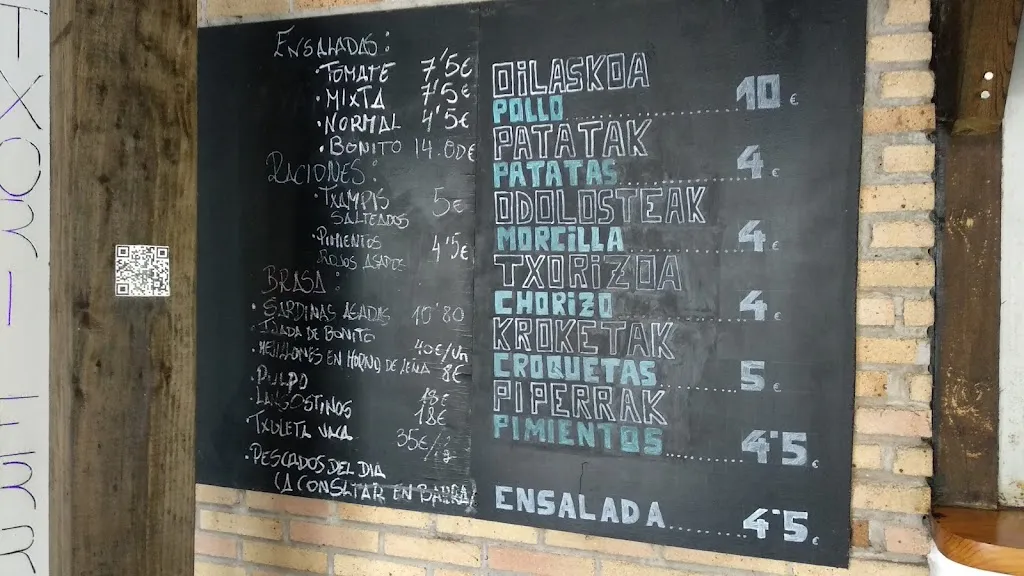 ENSALADAS:
·TOMATE 7'5€
·MIXTA 7'5€
·NORMAL 4'5€
·BONITO 14.0D€
RACIONES:
·TXAMPIS
SALTEADOS 5€
·PIMIENTOS
ROJOS ASADOS 4'5€
BRASA:
·SARDINAS ASADAS 10'80
·IJADA DE BONITO
40€/
·MEJILLONES EN HORNO DE LEÑA 8€
·PULPO 18€
·LANGOSTINOS 18€
·TXULETA VACA 35€/
·PESCADOS DEL DIA
(A CONSLTAR EN BARRA)
OiLASKOA
POLLO 10 €
PATATAK
PATATAS 4 €
ODOLOSTEAK
MORCILLA 4 €
TXORiZOA
CHORIZO 4 €
KROKETAK
CROQUETAS 5 €
PiPERRAK
PIMIENTOS 4'5 €
ENSALADA 4'5 €